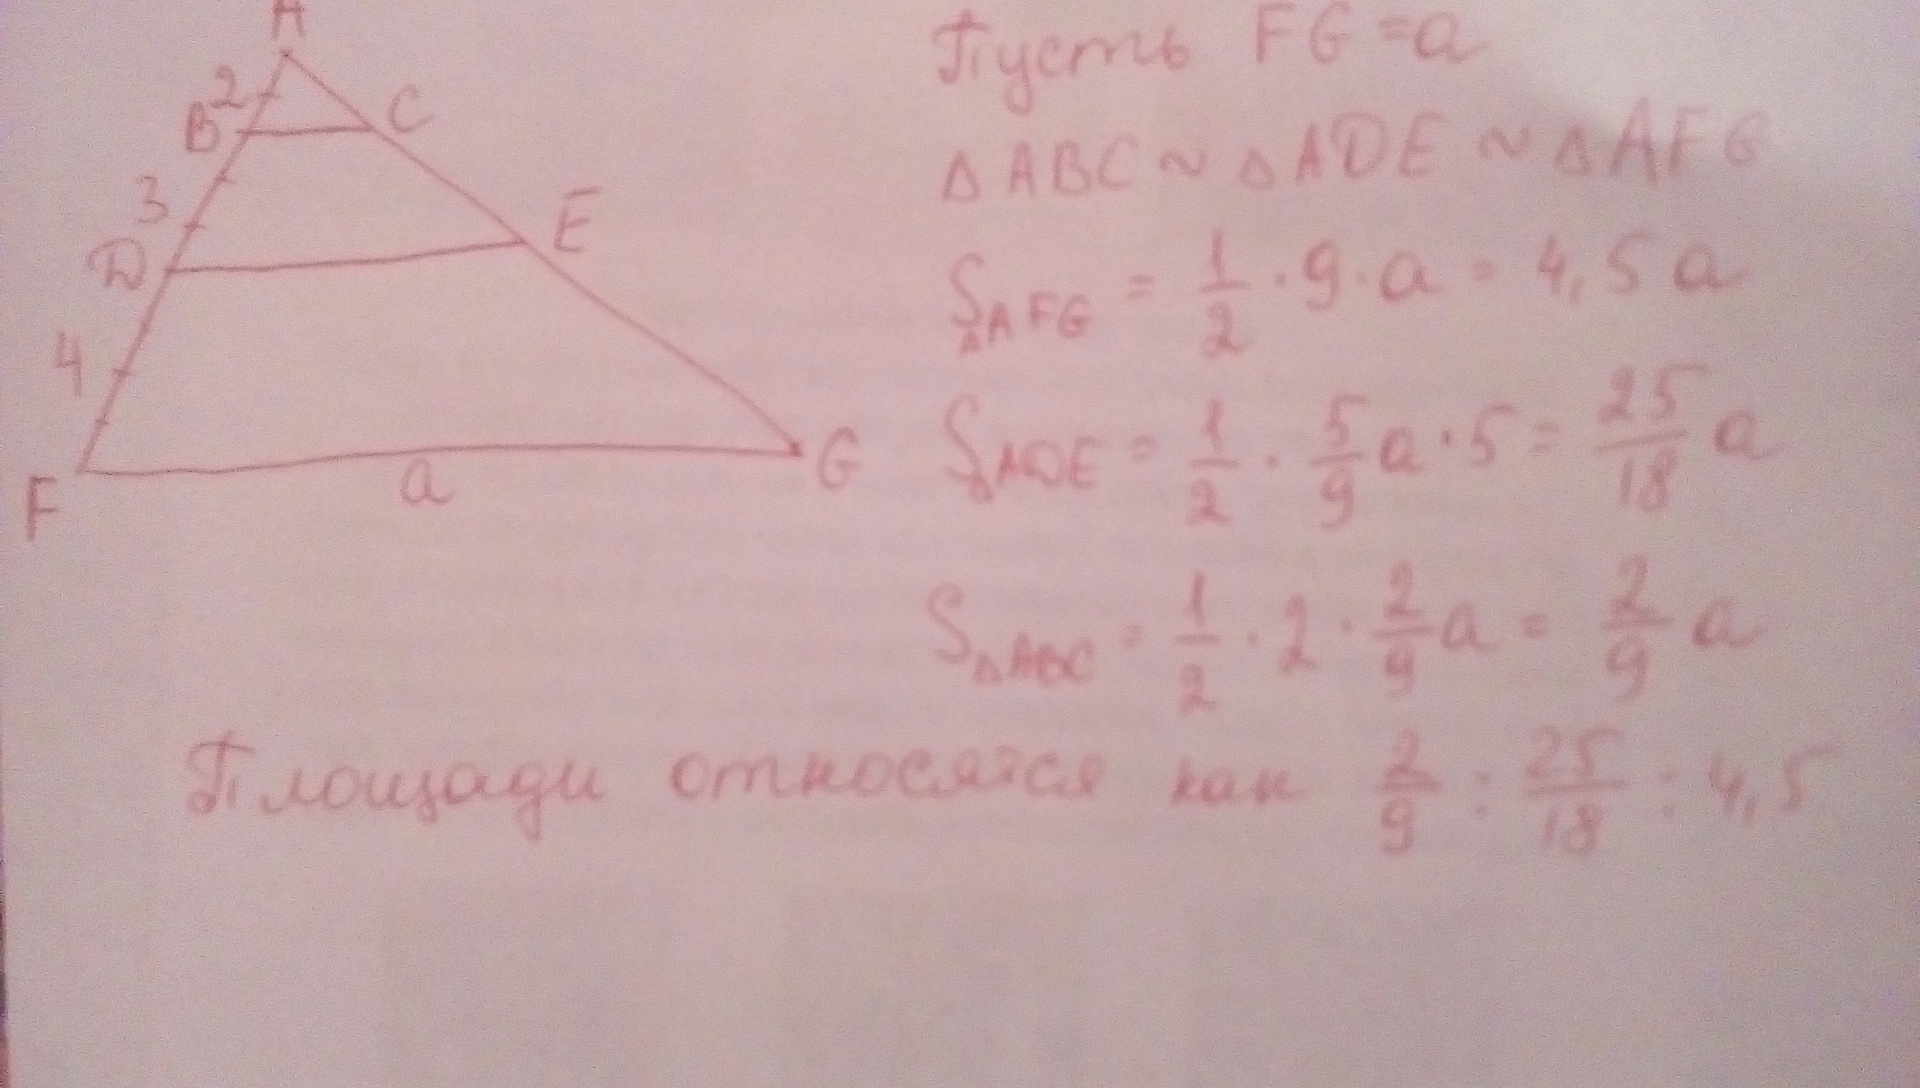 A
2
B
C
3
D
E
4
F
a
G
Пусть FG = a
Δ ABC ~ Δ ADE ~ Δ AFG
S ΔAFG = 1/2 · 9 · a = 4,5 a
S ΔADE = 1/2 · 5/9 a · 5 = 25/18 a
S ΔABC = 1/2 · 2 · 2/9 a = 2/9 a
Площади относятся как 2/9 : 25/18 : 4,5